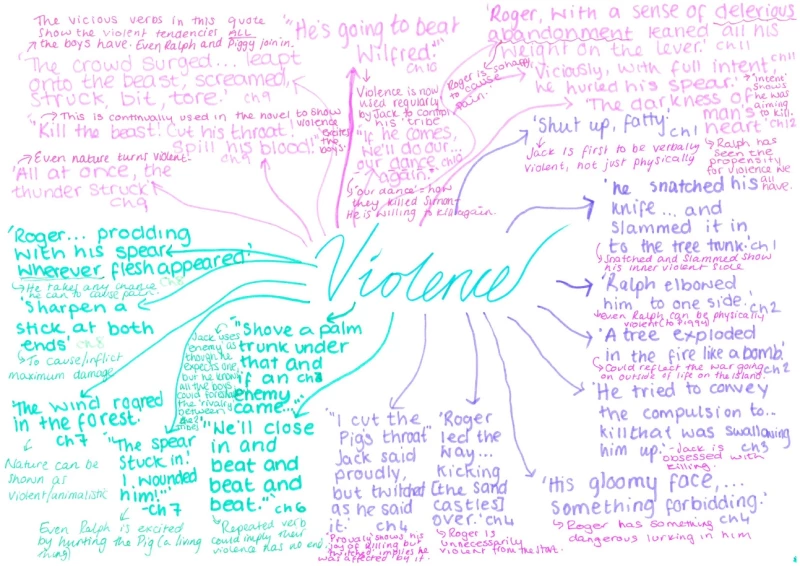 The vicious verbs in this quote
show the violent tendencies ALL
the boys have. Even Ralph and Piggy join in.
'The crowd surged... leapt
onto the beast, screamed,
struck, bit, tore.' ch9
This is continually used in the novel to show
violence
excites
the
boys.
"Kill the beast! Cut his throat!
Spill his blood!" ch9
Even nature turns violent.
'All at once, the
thunder struck'
ch9
"He's going to beat
Wilfred."
ch10
Violence is now
used regularly
by Jack to control
his tribe
"If he comes,
we'll do our...
our dance
again."
ch10
'our dance' = how
they killed Simon.
He is willing to kill again.
'Roger, with a sense of delerious
abandonment leaned all his
weight on the lever.' ch11
Roger is so happy
to cause
pain.
'Viciously, with full intent, ch11
he hurled his spear.'
'intent'
shows
he was
aiming
to kill.
'The darkness of
man's
heart' ch12
Ralph has
seen the
propensity
for violence we
all
have.
'Shut up, fatty.' ch1
Jack is first to be verbally
violent, not just physically
'he snatched his
knife... and
slammed it in
to the tree trunk.' ch1
Snatched and slammed show
his inner violent side
'Ralph elbowed
him to one side.' ch2
even Ralph can be physically
violent (to Piggy)
'A tree exploded
in the fire like a bomb.'
ch2
Could reflect the war going
on outside of life on the island.
'He tried to convey
the compulsion to...
kill that was swallowing
him up.' - Jack is
obsessed with
killing.
ch3
'His gloomy face,...
something forbidding.'
ch4
Roger has something
dangerous lurking in him
'Roger
led the
way...
kicking
[the sand
castles]
over.' ch4
Roger is
unnecessarily
violent from the start.
"I cut the
Pig's throat"
Jack said
proudly,
but twitched
as he said
it.' ch4
'Proudly' shows his
joy of killing but
twitched implies he
was affected by it.
Violence
'Roger... prodding
with his spear
wherever flesh appeared'
ch8
He takes any chance
he can to cause pain.
'Sharpen a
stick at both
ends' ch8
To cause/inflict
maximum damage
'The wind roared
in the forest.'
ch7
Nature can be
shown as
violent/animalistic
"The spear
stuck in!
I wounded
him!"
-ch7
Even Ralph is excited
by hunting the Pig (a living
thing)
"Shove a palm
trunk under
that and
if an
enemy
came..."
Jack uses
enemy as
though he
expects one
but he knows
all the boys
"We'll close
in and
beat and
beat and
beat."
ch6
Repeated verb
could imply their
violence has no end.